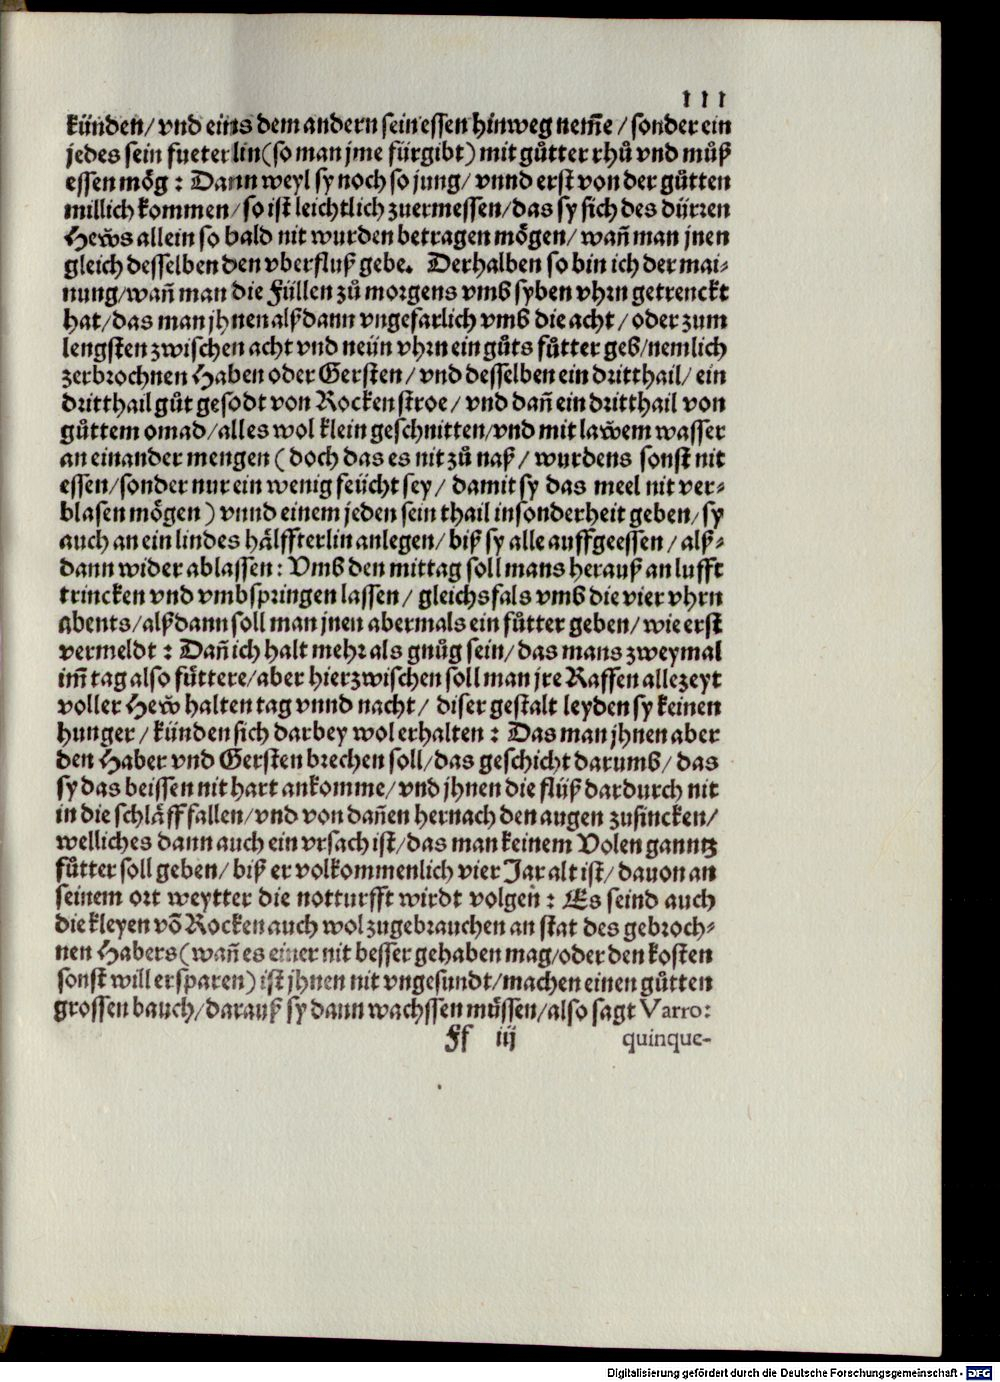 111
künden/ vnd eins dem andern sein essen hinweg nem̃e / sonder ein
jedes sein fueterlin (so man jme fürgibt) mit gůtter rhů vnd můß
essen mög : Dann weyl sy noch so jung/ vnnd erst von der gůtten
millich kommen/ so ist leichtlich zuermessen/ das sy sich des dürren
Hew̃s allein so bald nit wurden betragen mögen/ wañ man jnen
gleich desselben den vberfluß gebe. Derhalben so bin ich der mai-
nung/ wañ man die Füllen zů morgens vmb syben vhrn getrenckt
hat/ das man jhnen alßdann vngefarlich vmb die acht / oder zum
lengsten zwischen acht vnd neün vhrn ein gůts fůtter geb/ nemlich
zerbrochnen Haben oder Gersten / vnd desselben ein dritthail/ ein
dritthail gůt gesodt von Rockenstroe / vnd dañ ein dritthail von
gůttem omad/ alles wol klein geschnitten/ vnd mit law̃em wasser
an einander mengen ( doch das es nit zů naß / wurdens sonst nit
essen/ sonder nur ein wenig feücht sey / damit sy das meel nit ver-
blasen mögen ) vnnd einem jeden sein thail in sonderheit geben/ sy
auch an ein lindes hälffterlin anlegen/ biß sy alle auffgeessen / alß-
dann wider ablassen : Vmb den mittag soll mans herauß an lufft
trincken vnd vmbspringen lassen / gleichsfals vmb die vier vhrn
abents/ alßdann soll man jnen abermals ein fůtter geben/ wie erst
vermeldt : Dañ ich halt mehr als gnůg sein/ das mans zweymal
im̃ tag also fůttere/ aber hierzwischen soll man jre Raffen allezeyt
voller Hew̃ halten tag vnnd nacht / diser gestalt leyden sy keinen
hunger / künden sich darbey wol erhalten : Das man jhnen aber
den Haber vnd Gersten brechen soll/ das geschicht darumb/ das
sy das beissen nit hart ankomme/ vnd jhnen die flüß dardurch nit
in die schläff fallen/ vnd von dañen hernach den augen zusincken/
welliches dann auch ein vrsach ist/ das man keinem Volen ganntz
fůtter soll geben/ biß er volkommenlich vier Jar alt ist/ dauon an
seinem ort weytter die notturfft wirdt volgen : Es seind auch
die kleyen võ Rocken auch wol zugebrauchen an stat des gebroch-
nen Habers (wañ es einer nit besser gehaben mag/ oder den kosten
sonst will ersparen) ist jhnen nit vngesundt/ machen einen gůtten
grossen bauch/ darauß sy dann wachssen müssen/ also sagt Varro:
Ff iij quinque-
Digitalisierung gefördert durch die Deutsche Forschungsgemeinschaft - DFG